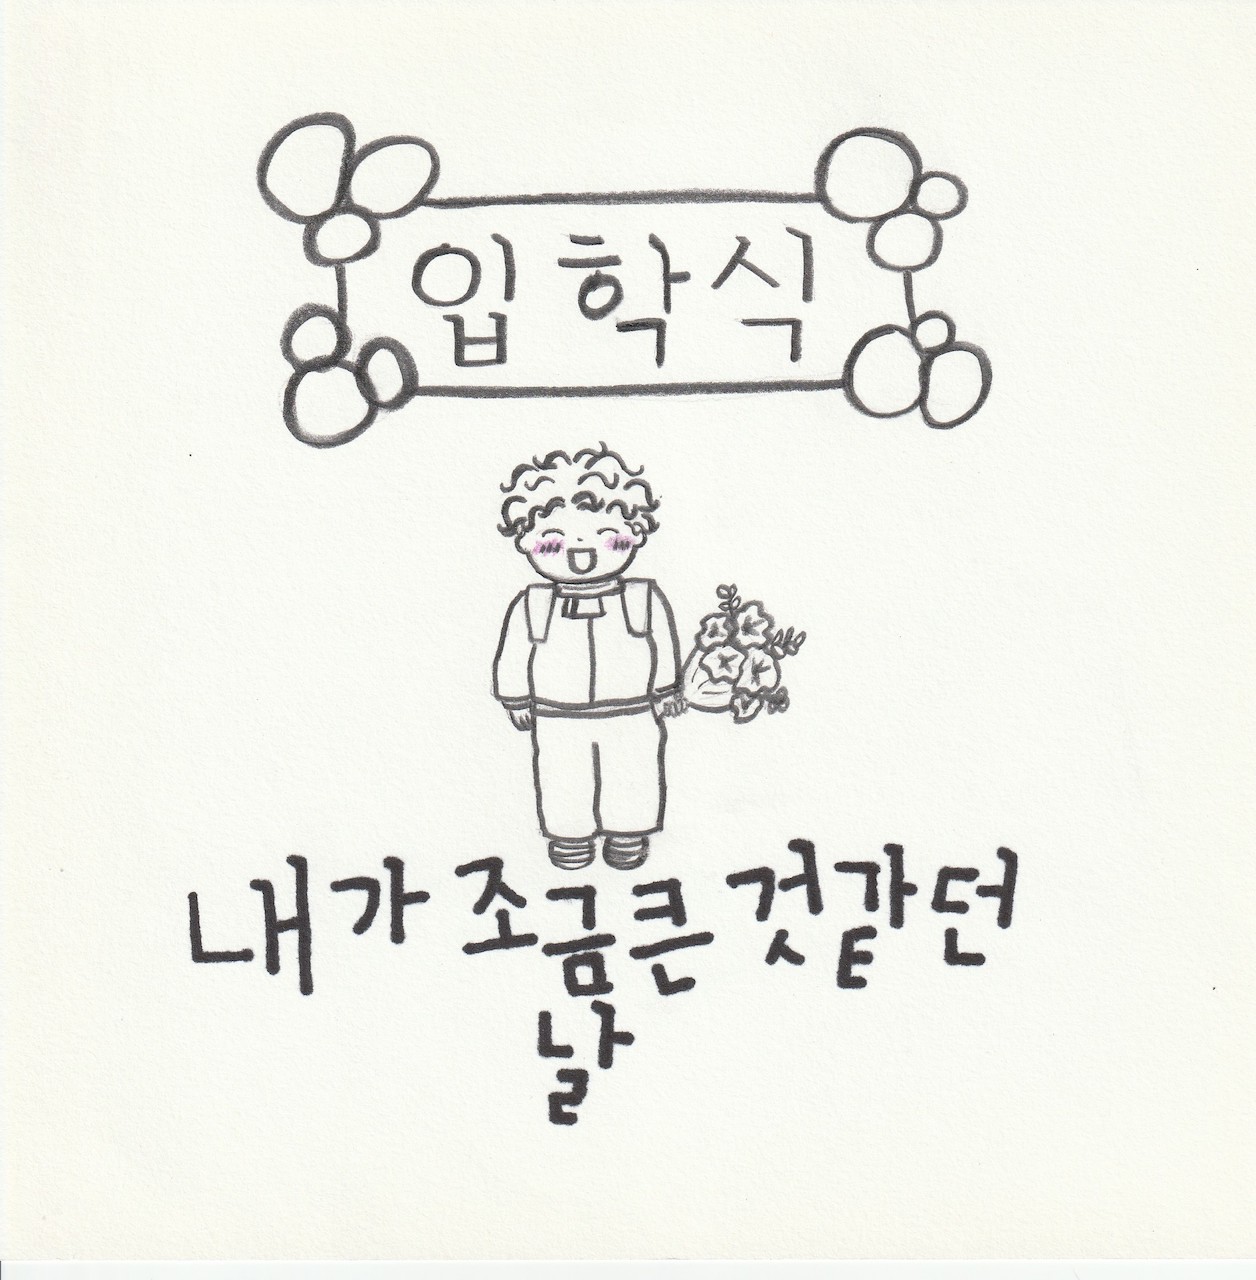 입학식
내가 조금큰 것같던
날